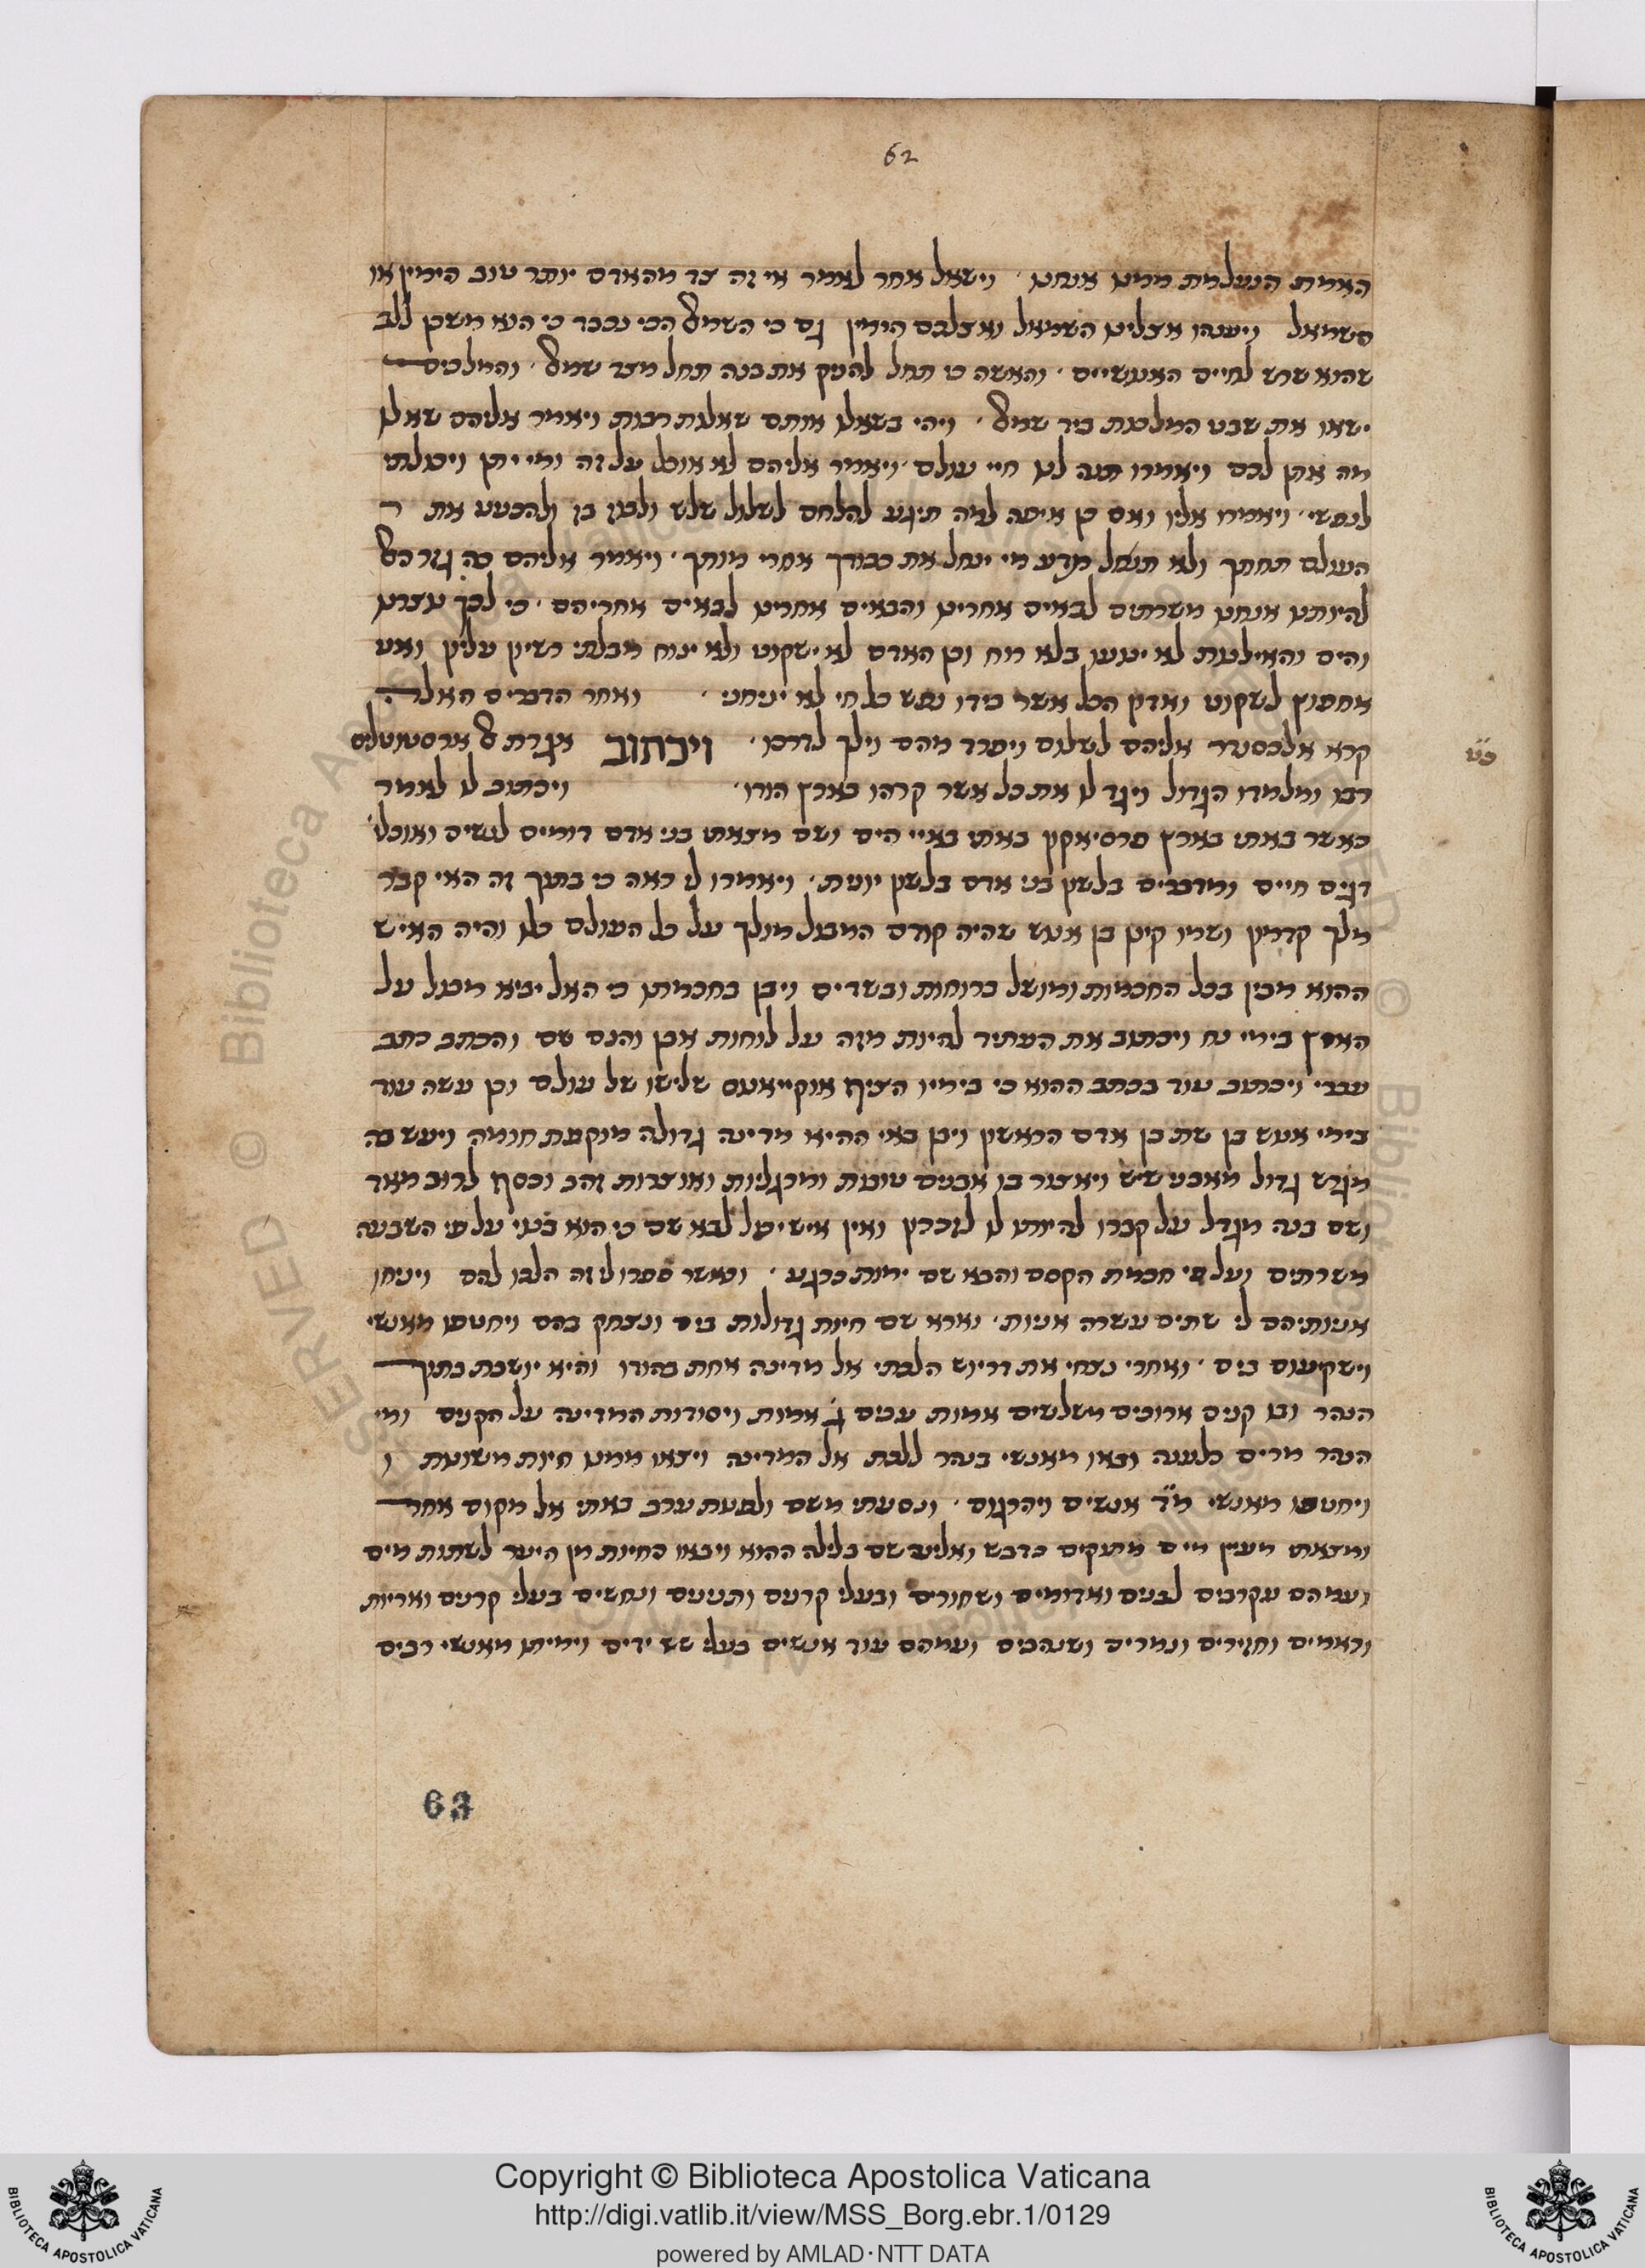 62
האמת הנעלמת ממנו אנחנו וישאל אחר לאמר אי זה צד מהאדם יותר טוב הימין או
השמאל ויענהו אצלינו השמאל ואצלכם הימין גם כי השמאל הכי נכבד כי הוא משכן ללב
שהוא שרש לחיים האנושיים והאשה כי תחל להניק את בנה תחל מצד שמאל והמלכים
ישאו את שבט המלכות ביד שמאל ויהי בשאלו אותם שאלות רבות ויאמר אליהם שאלו
מה אתן לכם ויאמרו תנה לנו חיי עולם ויאמר אליהם לא אוכל על זה ומי יתן ויכולתי
לנפשי ויאמרו אליו ואם כן איפה למה תיגע להלחם לשלול שלל ולבוז בז ולהכניע את
העולם תחתיך ולא תשכיל מדע מי ינחל את כבודך אחרי מותך ויאמר אליהם כה גזר האל
להיותנו אנחנו משרתים לבאים אחרינו והבאים אחרינו לבאים אחריהם כי לכך נוצרנו
והים והאילנות לא ינועו בלא רוח וכן האדם לא ישקוט ולא ינוח מבלתי רשיון עליון ואני
אחפוץ לשקוט ואדון הכל אשר בידו נפש כל חי לא יניחני ואחר הדברים האלה
קרא אלכסנדר אליהם לשלום ויפרד מהם וילך לדרכו ויכתוב אגרת אל ארסטוטלוס
כ״ט
רבו ומלמדו הגדול ויגד לו את כל אשר קרהו בארץ הודו ויכתוב לו לאמר
כאשר באתי בארץ פרסיאקין באתי באיי הים ושם מצאתי בני אדם דומים לנשים ואוכלי
דגים חיים ומדברים בלשון בני אדם בלשון יונית ויאמרו לי ראה כי בתוך זה האי קבר
מלך קדמון ושמו קינן בן אנוש שהיה קודם המבול מולך על כל העולם כלו והיה האיש
ההוא מבין בכל החכמות ומושל ברוחות ובשדים ויבן בחכמתו כי האל יביא מבול על
הארץ בימי נח ויכתוב את העתיד להיות מזה על לוחות אבן והנם שם והכתב כתב
עברי ויכתוב עוד בכתב ההוא כי בימיו הציף אוקיינוס שלישו של עולם וכן עשה עוד
בימי אנוש בן שת בן אדם הראשון ויבן באי ההיא מדינה גדולה מוקפת חומה ויעש בה
מגרש גדול מאבני שיש ויאצור בו אבנים טובות ומרגליות ואוצרות זהב וכסף לרוב מאד
ושם בנה מגדל על קברו להיותו לו לזכרון ואין איש יכול לבא שם כי הוא בנוי על פי השבעה
משרתים ועל פי חכמת הקסם והבא שם ימות כרגע וכאשר ספרו לי זה הלכו להם ויניחו
אניותיהם לי שתים עשרה אניות וארא שם חיות גדולות בים ונצחק בהם ויחטפו מאנשי
וישקיעום בים ואחרי נצחי את דריוש הלכתי אל מדינה אחת בהודו והיא יושבת בתוך
הנהר ובו קנים ארוכים משלשים אמות עבים ג׳ אמות ויסודות המדינה על הקנים ומי
הנהר מרים כלענה ובאו מאנשי בנהר ללכת אל המדינה ויצאו ממנו חיות משונות
ויחטפו מאנשי ויהרגום ונסעתי משם ולפנות ערב באתי אל מקום אחר
ומצאתי מעין מים מתוקים כדבש ואלינו שם בלילה ההוא ויבאו החיות מן היער לשתות מים
ועמהם עקרבים לבנים ואדומים ושחורים ובעלי קרנים ותנינים ונחשים בעלי קרנים ואריות
וראמים וחזירים ונמרים ושנהבים ועמהם עוד אנשים בעלי שש ידים וימיתו מאנשי רבים
63
Copyright © Biblioteca Apostolica Vaticana
http://digi.vatlib.it/view/MSS_Borg.ebr.1/0129
powered by AMLAD·NTT DATA